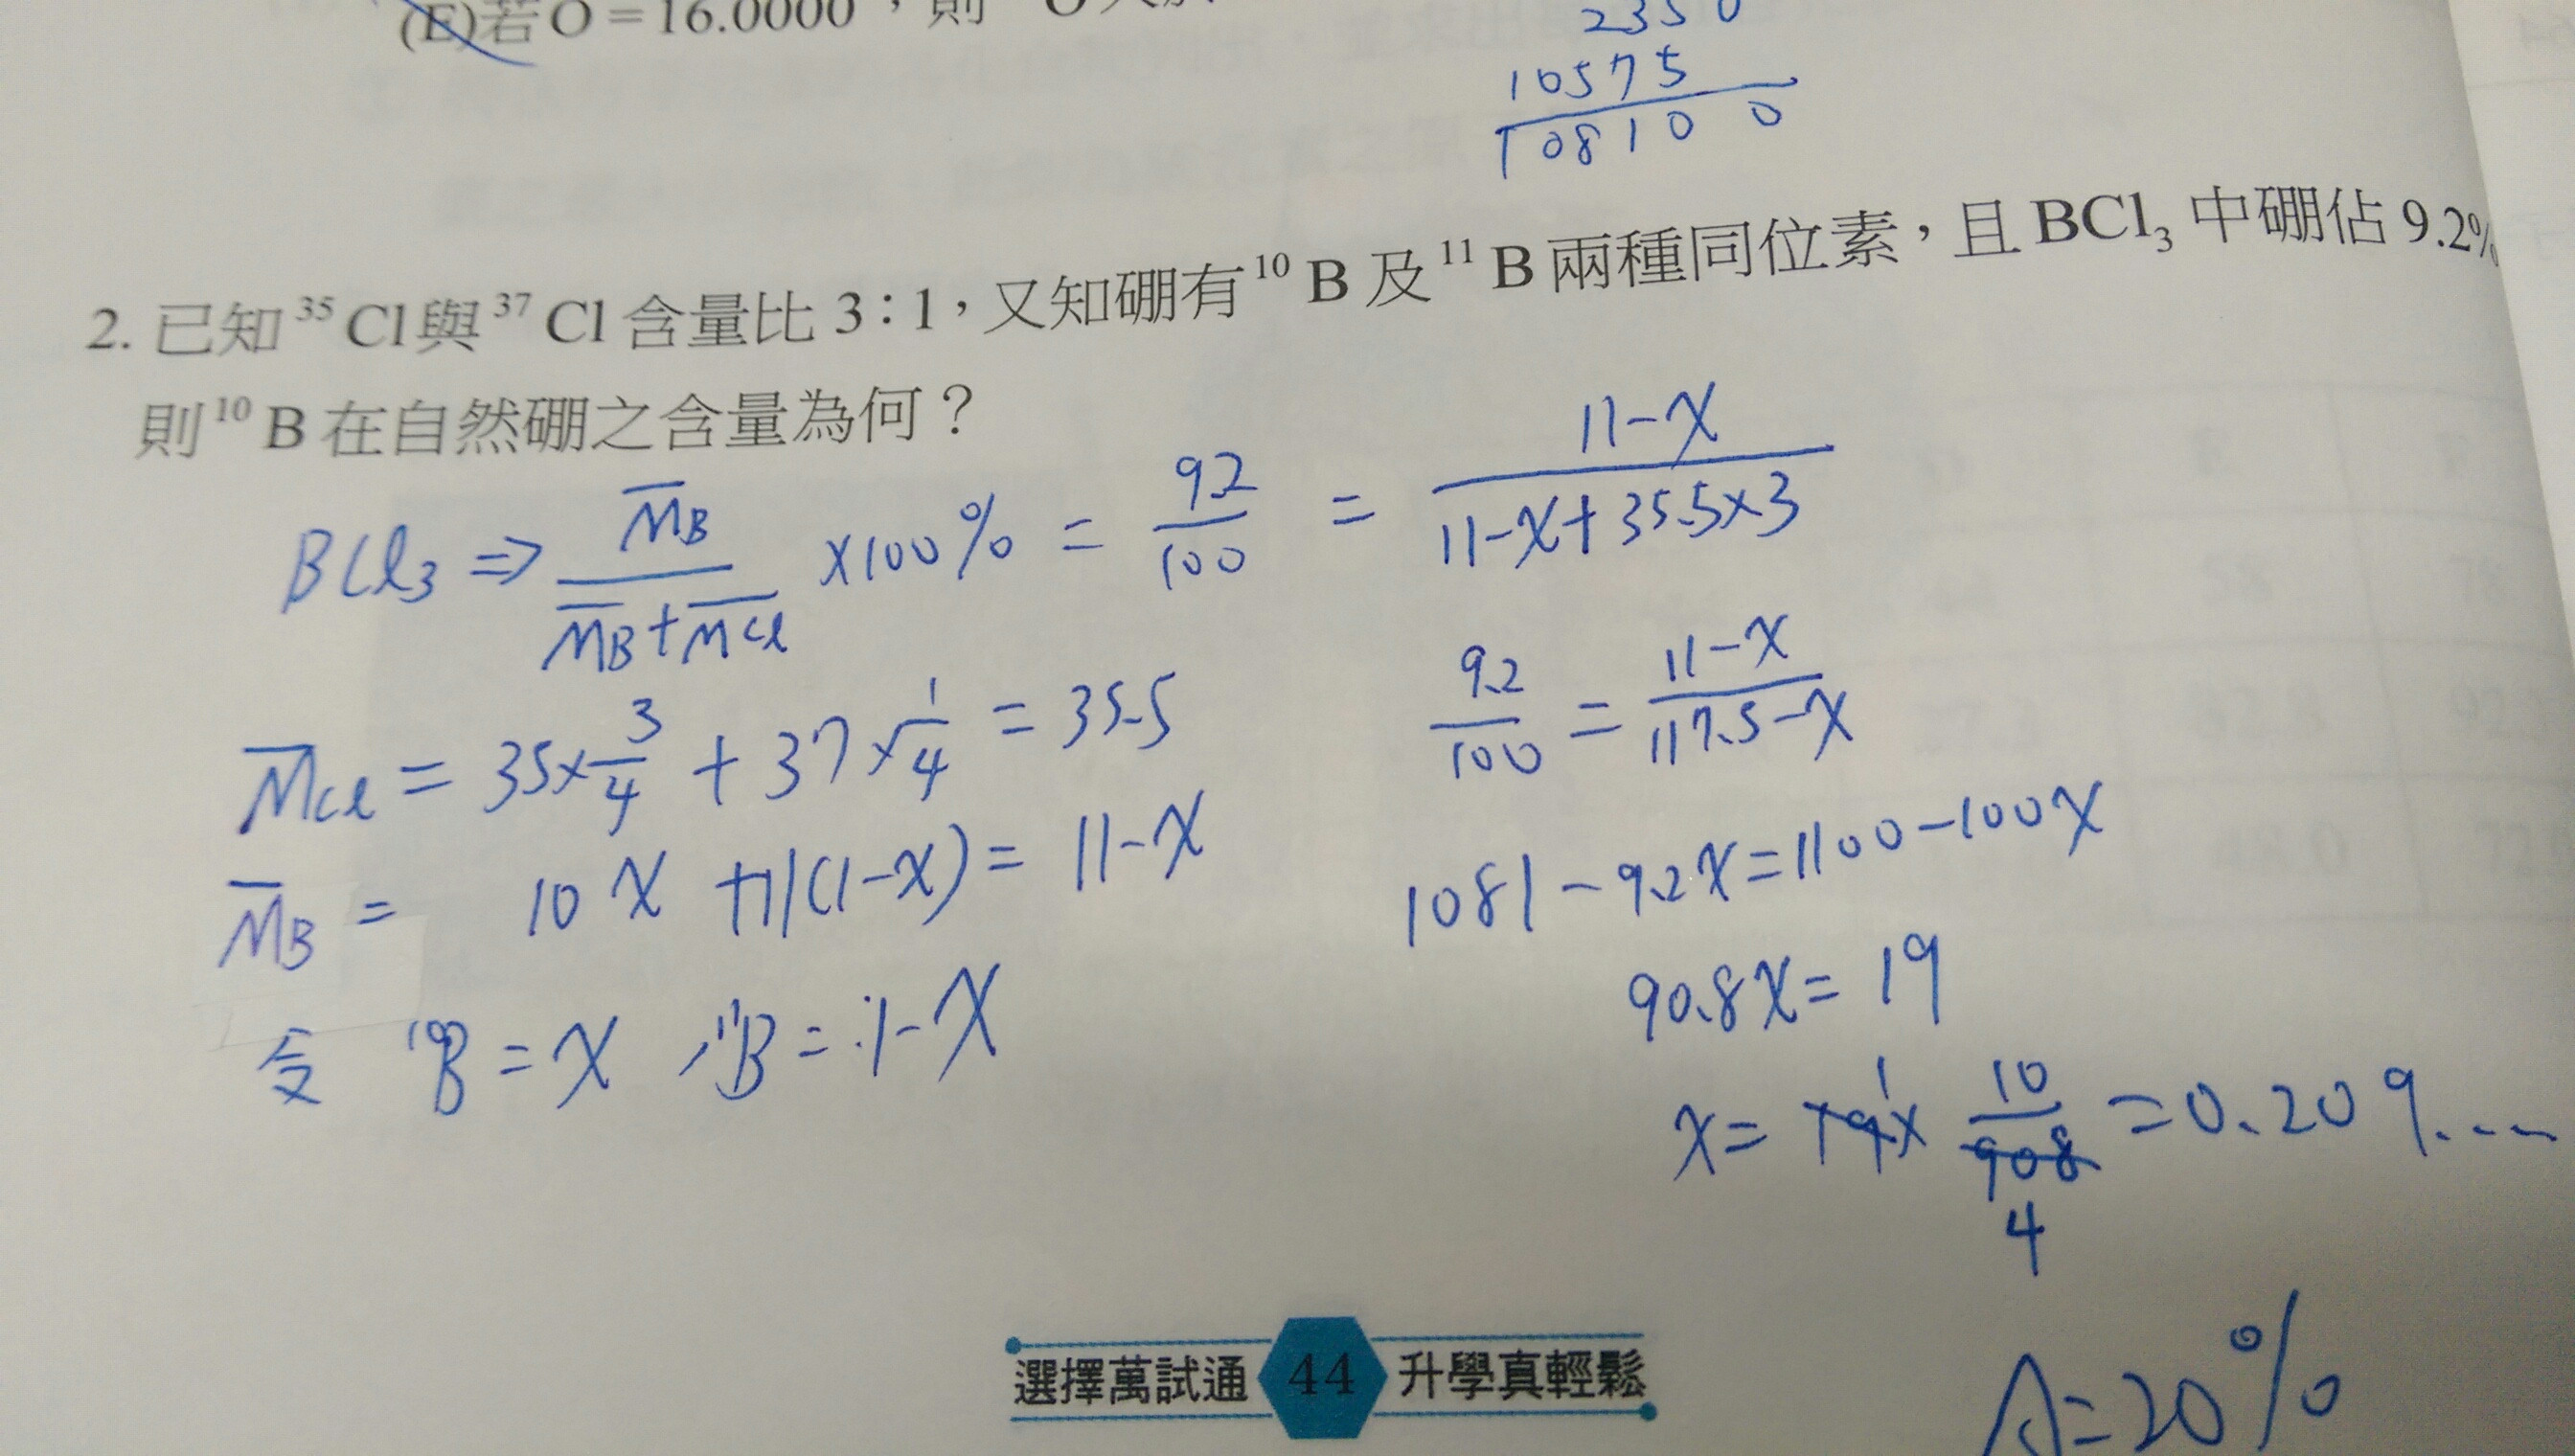 (E)若O=16.0000,則
2350
10575
108100
2. 已知 ³⁵Cl與 ³⁷Cl 含量比 3:1,又知硼有 ¹⁰B 及 ¹¹B 兩種同位素,且 BCl₃ 中硼佔 9.2%
則 ¹⁰B 在自然硼之含量為何?
BCl₃ ⇒ M̅B / (M̅B + M̅Cl) ×100% = 9.2/100 = (11-x) / (11-x+35.5×3)
9.2/100 = (11-x) / (117.5-x)
M̅Cl = 35×3/4 + 37×1/4 = 35.5
1081-9.2x=1100-100x
M̅B = 10x +11(1-x) = 11-x
90.8x = 19
令 ¹⁰B = x , ¹¹B = 1-x
x = 19× 10/908 = 0.209...
1
4
A=20%
選擇萬試通 44 升學真輕鬆